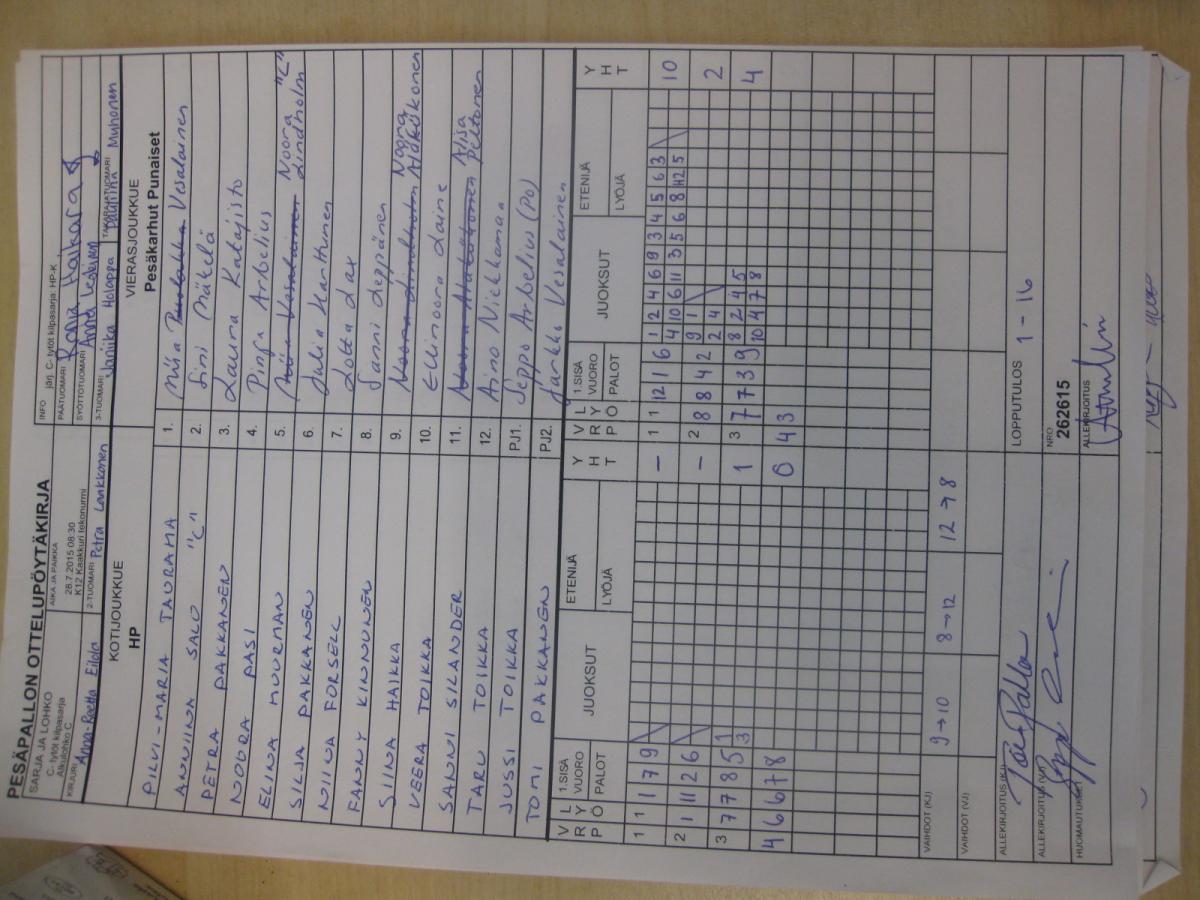 PESÄPALLON OTTELUPÖYTÄKIRJA
SARJA JA LOHKO
C- tytöt kilpasarja
Alkulohko C
AIKA JA PAIKKA
28.7.2015 08:30
K12 Kaakkuri tekonurmi
INFO järj. C- tytöt kilpasarja HP-K
PÄÄTUOMARI Ronja Haikara
SYÖTTÖTUOMARI Anne
KIRJURI Anna-Reetta Eilola
2-TUOMARI Petra Lankkonen
3-TUOMARI Janika Holappa
TAKARAJATUOMARI Pauliina Muhonen
KOTIJOUKKUE
HP
VIERASJOUKKUE
Pesäkarhut Punaiset
PILVI-MARIA TAURAMA 1. Miia Vesalainen
ANNIINA SALO "C" 2. Sini Mäkelä
PETRA PAKKANEN 3. Laura Katajisto
NOORA PASI 4. Pinja Arbelius
ELINA MUURMAN 5. Miia Vesalainen Noora Lindholm "C"
SILJA PAKKANEN 6. Julia Karttunen
NIINA FORSELL 7. Lotta Lax
FANNY KINNUNEN 8. Sanni Seppänen
SIINA HAIKKA 9. Noora Lindholm Noora Aläkökonen
VEERA TOIKKA 10. Ellinoora Laine
SANNI SILANDER 11. Noora Aläkökonen Peltonen
TARU TOIKKA 12. Aino Niekkamaa
JUSSI TOIKKA PJ1. Seppo Arbelius (PO)
TOMI PAKKANEN PJ2. Jarkko Vesalainen
V R P L Y Ö 1.SISÄ VUORO PALOT JUOKSUT ETENIJÄ LYÖJÄ Y H T V R P L Y Ö 1.SISÄ VUORO PALOT JUOKSUT ETENIJÄ LYÖJÄ Y H T
1 1 1 7 9 - 1 1 12 1 6 1 2 4 6 9 3 4 5 6 3 10
4 10 6 11 3 5 6 8 12 5
2 1 11 2 6 - 2 8 8 4 2 9 1 2
2 4
3 7 7 8 5 1 1 3 7 7 3 9 8 2 4 5 4
3 10 4 7 8
4 6 6 7 8 0 4 3
VAIHDOT (KJ) 9→10 8→12 12→8
VAIHDOT (VJ)
ALLEKIRJOITUS (KJ)
ALLEKIRJOITUS (VJ)
HUOMAUTUKSET
LOPPUTULOS 1 - 16
NRO
262615
ALLEKIRJOITUS